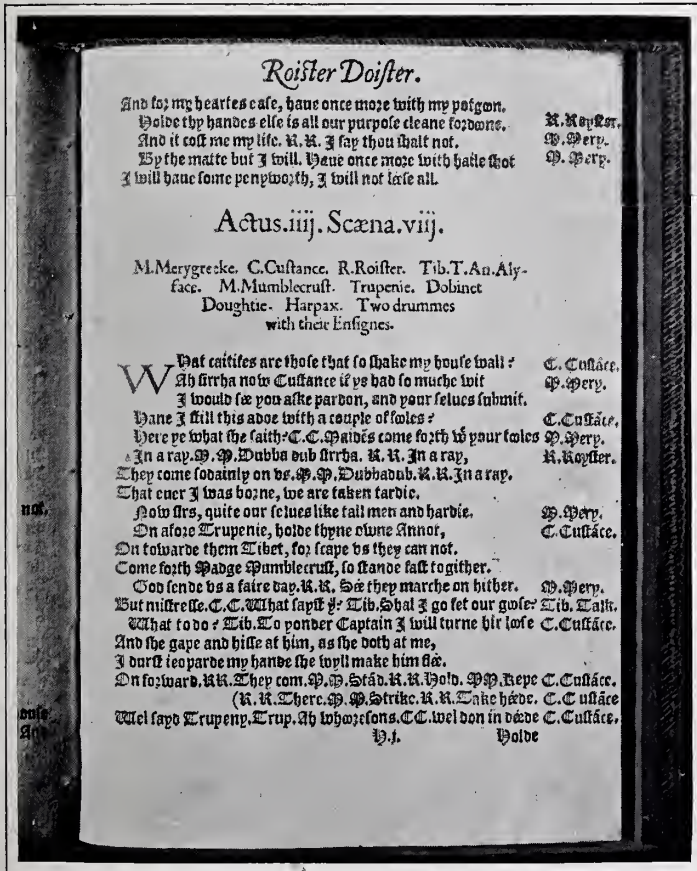 Roister Doister.
And for my heartes ease, haue once more with my potgoon.
Holde thy handes else is all our purpose cleane fordoone. R.Royster.
And it cost me my life. R.R. I say thou shalt not. M.Mery.
By the matte but I will. Haue once more with haile shot M.Mery.
I will haue some penyworth, I will not leese all.
Actus.iiij.Scæna.viij.
M.Merygreeke. C.Custance. R.Roister. Tib.T.An.Aly-
face. M.Mumblecrust. Trupenie. Dobinet
Doughtie. Harpax. Two drummes
with their Ensignes.
WHat caitifes are those that so shake my house wall? C.Custãce.
Ah sirrha now Custance if ye had so muche wit M.Mery.
I would see you aske pardon, and your selues submit.
Haue I still this adoe with a couple of fooles? C.Custãce.
Here ye what she saith? C.C. Maides come forth wͭ your tooles M.Mery.
In a ray. M.M. Dubba dub sirrha. R.R. In a ray, R.Royster.
They come sodainly on vs. M.M. Dubbadub. R.R. In a ray.
That euer I was borne, we are taken tardie.
Now sirs, quite our selues like tall men and hardie. M.Mery.
On afore Trupenie, holde thyne owne Annot, C.Custãce.
On towarde them Tibet, for scape vs they can not.
Come forth Madge Mumblecrust, so stande fast togither.
God sende vs a faire day. R.R. See they marche on hither. M.Mery.
But mistresse. C.C. What sayst yͧ? Tib. Shal I go fet our goose? Tib. Talk.
What to do? Tib. To yonder Captain I will turne hir loose C.Custãce.
And she gape and hisse at him, as she doth at me,
I durst ieoparde my hande she wyll make him flee.
On forward. RR. They com. M.M. Stãd. R.R. Hold. MM. Kepe C.Custãce.
(R.R. There. M.M. Strike. R.R. Take heede. C.Custãce
Wel sayd Trupeny. Trup. Ah whooresons. CC. wel don in deede C.Custãce.
H.j. Holde
not.
And